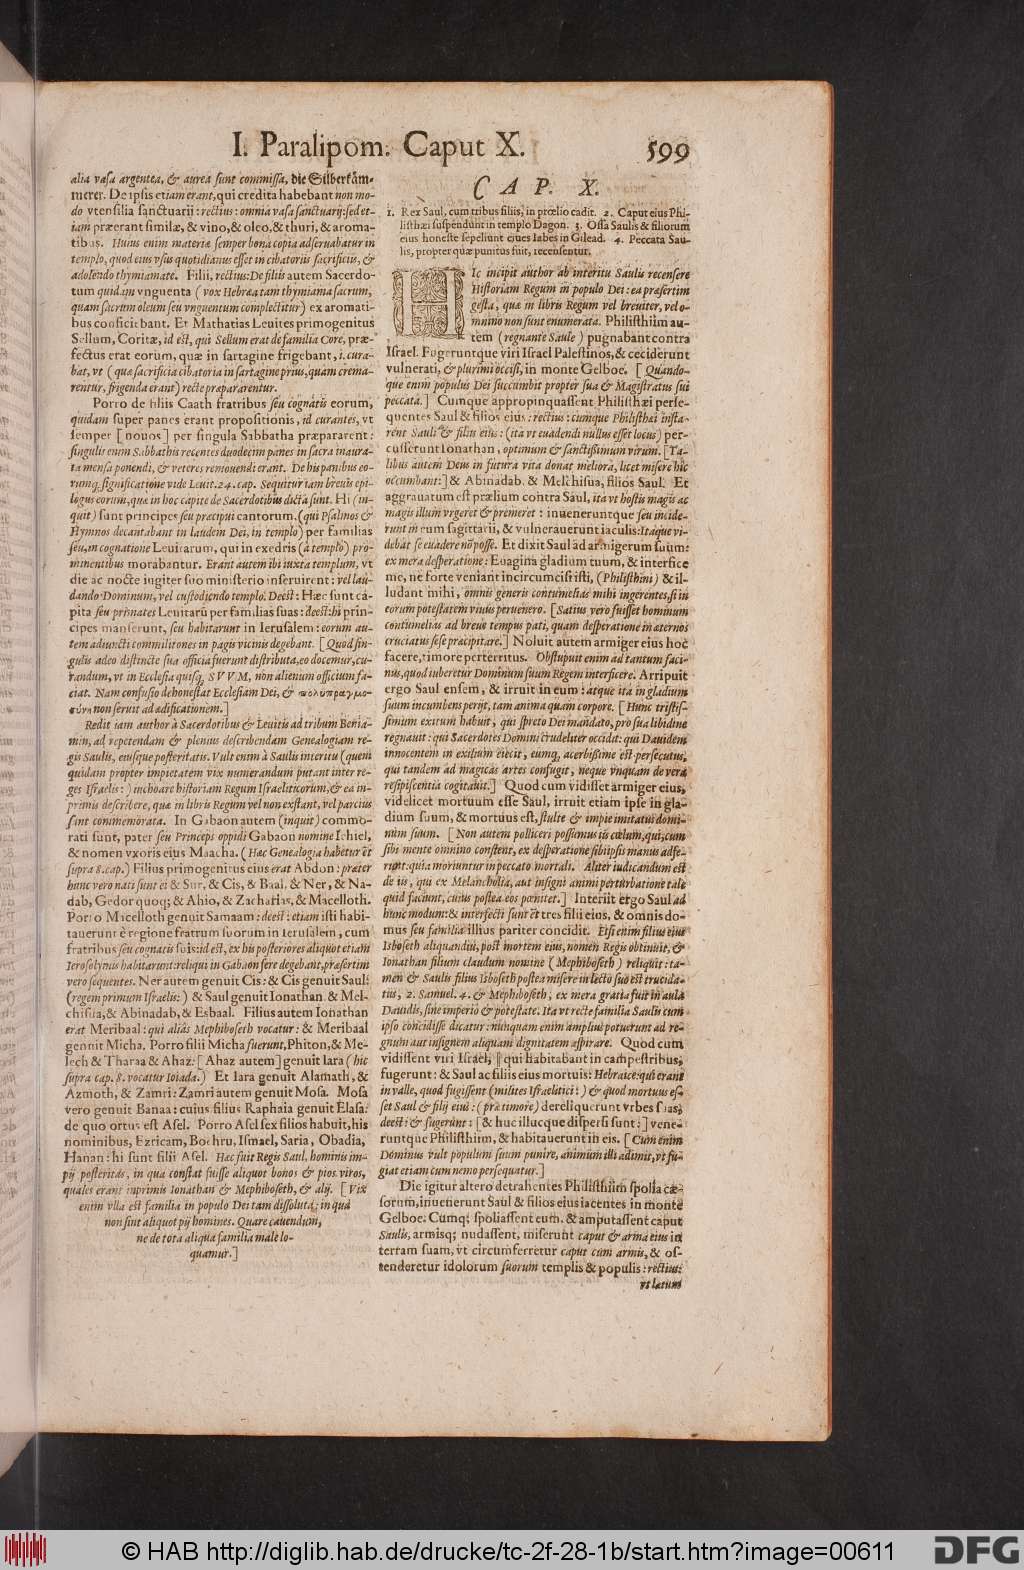 I. Paralipom. Caput X. 599
alia vasa argentea, & aurea sunt commissa, die Silberkäm-
merer. De ipsis etiam erant, qui credita habebant non mo-
do vtensilia sanctuarii: rectius: omnia vasa sanctuarij: sed et-
iam præerant similæ, & vino, & oleo, & thuri, & aroma-
tibus. Huius enim materiæ semper bona copia adseruabatur in
templo, quod eius vsus quotidianus esset in cibatoriis sacrificiis, &
adolendo thymiamate. Filii, rectius: De filiis autem Sacerdo-
tum quidam vnguenta (vox Hebræa tam thymiama sacrum,
quam sacrum oleum seu vnguentum complectitur) ex aromati-
bus conficiebant. Et Mathatias Leuites primogenitus
Sellum, Coritæ, id est, qui Sellum erat de familia Core, præ-
fectus erat eorum, quæ in sartagine frigebant, i. cura-
bat, vt (quæ sacrificia cibatoria in sartagine prius, quam crema-
rentur, frigenda erant) recte præpararentur.
Porro de filiis Caath fratribus seu cognatis eorum,
quidam super panes erant propositionis, id curantes, vt
semper [nouos] per singula Sabbatha præpararent:
singulis enim Sabbathis recentes duodecim panes in sacra inaura-
ta mensa ponendi, & veteres remouendi erant. De his panibus eo-
rumq; significatione vide Leuit. 24. cap. Sequitur iam breuis epi-
logus eorum, quæ in hoc capite de Sacerdotibus dicta sunt. Hi (in-
quit) sunt principes seu præcipui cantorum, (qui Psalmos &
Hymnos decantabant in laudem Dei, in templo) per familias
seu, in cognatione Leuitarum, qui in exedris (à templo) pro-
minentibus morabantur. Erant autem ibi iuxta templum, vt
die ac nocte iugiter suo ministerio inseruirent: vel lau-
dando Dominum, vel custodiendo templo. Deest: Hæc sunt ca-
pita seu primates Leuitarū per familias suas: deest: hi prin-
cipes manserunt, seu habitarunt in Ierusalem: eorum au-
tem adiuncti commilitones in pagis vicinis degebant. [Quod sin-
gulis adeo distincte sua officia fuerunt distributa, eo docemur, cu-
randum, vt in Ecclesia quisq; SVVM, non alienum officium fa-
ciat. Nam confusio dehonestat Ecclesiam Dei, & πολυπραγμο-
σύνη non seruit ad ædificationem.]
Redit iam author à Sacerdotibus & Leuitis ad tribum Benia-
min, ad repetendam & plenius describendam Genealogiam re-
gis Saulis, eiusque posteritatis. Vult enim à Saulis interitu (quem
quidam propter impietatem vix numerandum putant inter re-
ges Israelis:) inchoare historiam Regum Israeliticorum, & ea in-
primis describere, quæ in libris Regum vel non exstant, vel parcius
sunt commemorata. In Gabaon autem (inquit) commo-
rati sunt, pater seu Princeps oppidi Gabaon nomine Iehiel,
& nomen vxoris eius Maacha. (Hæc Genealogia habetur et
supra 8. cap.) Filius primogenitus eius erat Abdon: præter
hunc vero nati sunt ei & Sur, & Cis, & Baal, & Ner, & Na-
dab, Gedor quoq; & Ahio, & Zacharias, & Macelloth.
Porro Macelloth genuit Samaam: deest: etiam isti habi-
tauerunt è regione fratrum suorum in Ierusalem, cum
fratribus seu cognatis suis: id est, ex his posteriores aliquot etiam
Ierosolymis habitarunt: reliqui in Gabaon fere degebant, præsertim
vero sequentes. Ner autem genuit Cis: & Cis genuit Saul:
(regem primum Israelis:) & Saul genuit Ionathan & Mel-
chisua, & Abinadab, & Esbaal. Filius autem Ionathan
erat Meribaal: qui aliàs Mephiboseth vocatur: & Meribaal
genuit Micha. Porro filii Micha fuerunt, Phiton, & Me-
lech & Tharaa & Ahaz: [Ahaz autem] genuit Iara (hic
supra cap. 8. vocatur Ioiada.) Et Iara genuit Alamath, &
Azmoth, & Zamri: Zamri autem genuit Mosa. Mosa
vero genuit Banaa: cuius filius Raphaia genuit Elasa:
de quo ortus est Asel. Porro Asel sex filios habuit, his
nominibus, Ezricam, Bochru, Ismael, Saria, Obadia,
Hanan: hi sunt filii Asel. Hæc fuit Regis Saul, hominis im-
pij posteritas, in qua constat fuisse aliquot bonos & pios viros,
quales erant inprimis Ionathan & Mephiboseth, & alij. [Vix
enim vlla est familia in populo Dei tam dissoluta, in qua
non sint aliquot pij homines. Quare cauendum,
ne de tota aliqua familia male lo-
quamur.]
CAP. X.
1. Rex Saul, cum tribus filiis, in prœlio cadit. 2. Caput eius Phi-
listhæi suspendunt in templo Dagon. 3. Ossa Saulis & filiorum
eius honeste sepeliunt ciues Iabes in Gilead. 4. Peccata Sau-
lis, propter quæ punitus fuit, recensentur.
HIc incipit author ab interitu Saulis recensere
Historiam Regum in populo Dei: ea præsertim
gesta, quæ in libris Regum vel breuiter, vel o-
mnino non sunt enumerata. Philisthiim au-
tem (regnante Saule) pugnabant contra
Israel. Fugeruntque viri Israel Palestinos, & ceciderunt
vulnerati, & plurimi occisi, in monte Gelboe. [Quando-
que enim populus Dei succumbit propter sua & Magistratus sui
peccata.] Cumque appropinquassent Philisthæi perse-
quentes Saul & filios eius: rectius: cumque Philisthæi insta-
rent Sauli & filiis eius: (ita vt euadendi nullus esset locus) per-
cusserunt Ionathan, optimum & sanctissimum virum. [Ta-
libus autem Deus in futura vita donat meliora, licet misere hic
occumbant:] & Abinadab, & Melchisua, filios Saul. Et
aggrauatum est prælium contra Saul, ita vt hostis magis ac
magis illum vrgeret & premeret: inueneruntque seu incide-
runt in eum sagittarii, & vulnerauerunt iaculis: Itaque vi-
debat se euadere nō posse. Et dixit Saul ad armigerum suum:
ex mera desperatione: Euagina gladium tuum, & interfice
me, ne forte veniant incircumcisi isti, (Philisthini) & il-
ludant mihi, omnis generis contumelias mihi ingerentes, si in
eorum potestatem viuus peruenero. [Satius vero fuisset hominum
contumelias ad breue tempus pati, quam desperatione in æternos
cruciatus sese præcipitare.] Noluit autem armiger eius hoc
facere, timore perterritus. Obstupuit enim ad tantum faci-
nus, quod iuberetur Dominum suum Regem interficere. Arripuit
ergo Saul ensem, & irruit in eum: atque ita in gladium
suum incumbens perijt, tam anima quam corpore. [Hunc tristis-
simum exitum habuit, qui spreto Dei mandato, pro sua libidine
regnauit: qui Sacerdotes Domini crudeliter occidit: qui Dauidem
innocentem in exilium eiecit, eumq; acerbissime est persecutus,
qui tandem ad magicas artes confugit, neque vnquam de vera
resipiscentia cogitauit.] Quod cum vidisset armiger eius,
videlicet mortuum esse Saul, irruit etiam ipse in gla-
dium suum, & mortuus est, stulte & impie imitatus domi-
num suum. [Non autem polliceri possumus iis cœlum, qui, cum
sibi mente omnino constent, ex desperatione sibiipsis manus adfe-
runt: quia moriuntur in peccato mortali. Aliter iudicandum est
de iis, qui ex Melancholia, aut insigni animi perturbatione tale
quid faciunt, cuius postea eos pœnitet.] Interiit ergo Saul ad
hunc modum: & interfecti sunt et tres filii eius, & omnis do-
mus seu familia illius pariter concidit. Etsi enim filius eius
Isboseth aliquandiu, post mortem eius, nomen Regis obtinuit, &
Ionathan filium claudum nomine (Mephiboseth) reliquit: ta-
men & Saulis filius Isboseth postea misere in lecto suo est trucida-
tus, 2. Samuel. 4. & Mephiboseth, ex mera gratia fuit in aula
Dauidis, sine imperio & potestate. Ita vt recte familia Saulis cum
ipso concidisse dicatur: nunquam enim amplius potuerunt ad re-
gnum aut insignem aliquam dignitatem aspirare. Quod cum
vidissent viri Israel, qui habitabant in campestribus,
fugerunt: & Saul ac filiis eius mortuis: Hebraice: qui erant
in valle, quod fugissent (milites Israelitici:) & quod mortuus es-
set Saul & filij eius: (præ timore) dereliquerunt vrbes suas,
deest: & fugerunt: [& huc illucque dispersi sunt:] vene-
runtque Philisthiim, & habitauerunt in eis. [Cum enim
Dominus vult populum suum punire, animum illi adimit, vt fu-
giat etiam cum nemo persequatur.]
Die igitur altero detrahentes Philisthiim spolia cæ-
sorum, inuenerunt Saul & filios eius iacentes in monte
Gelboe. Cumq; spoliassent eum, & amputassent caput
Saulis, armisq; nudassent, miserunt caput & arma eius in
terram suam, vt circumferretur caput cum armis, & os-
tenderetur idolorum suorum templis & populis: rectius:
vt lætum
© HAB http://diglib.hab.de/drucke/tc-2f-28-1b/start.htm?image=00611
DFG